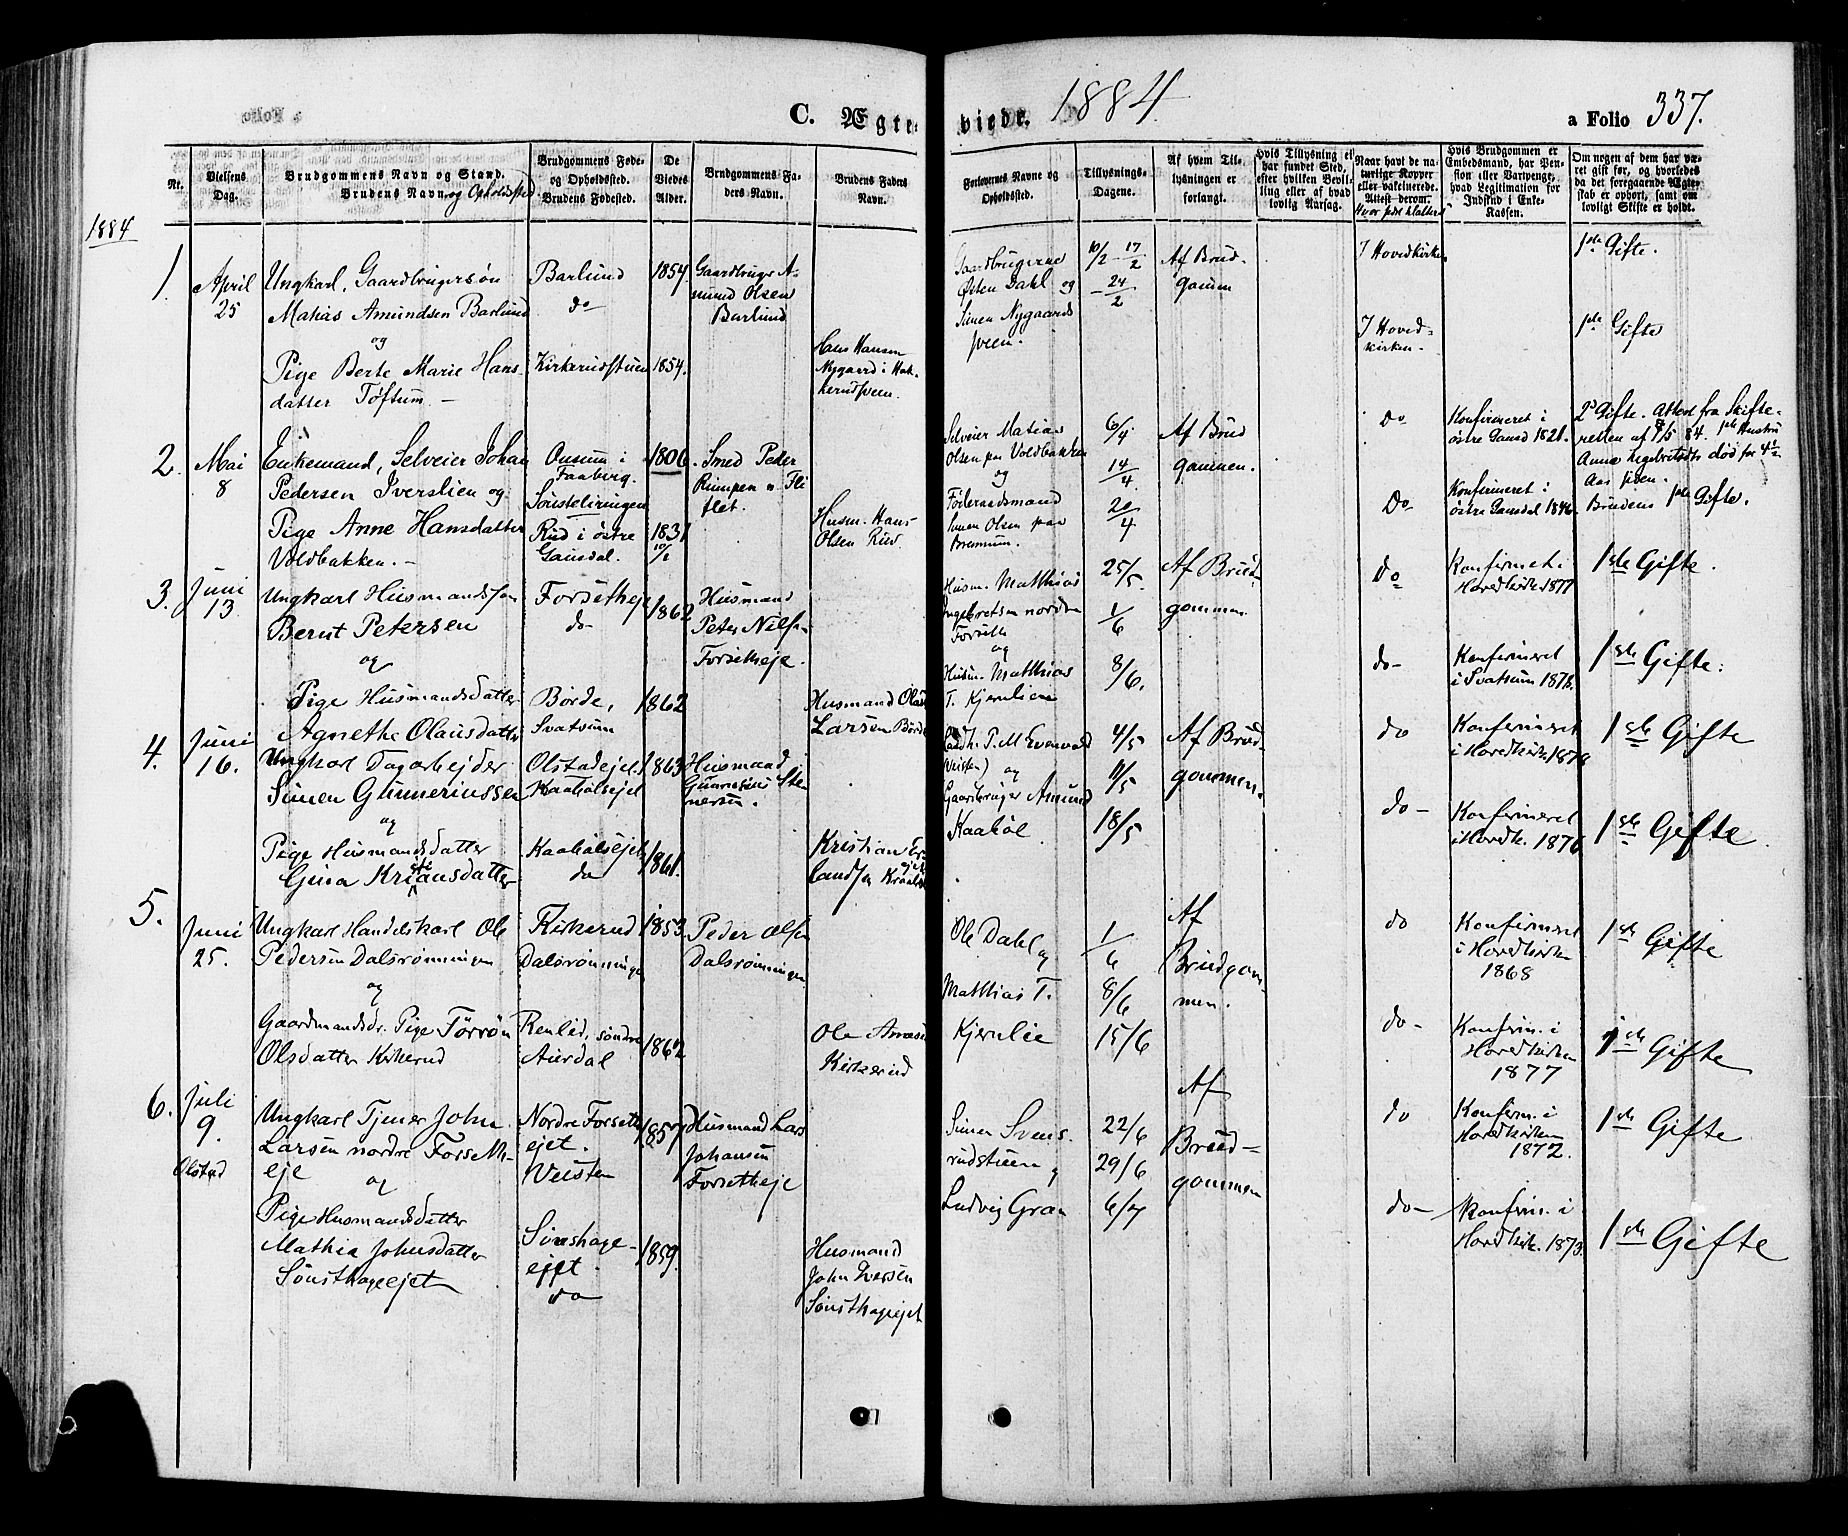 C. Ægte- viede. 1884.
a Folio 337.
Nr.
Vielsens Dag.
Brudgommens Navn og Stand.
Brudens Navn og Opholdsted
Brudgommens Føde- og Opholdssted.
Brudens Fødested.
De Viedes Alder.
Brudgommens Faders Navn.
Brudens Faders Navn.
Forlovernes Navne og Opholdssted.
Tillysnings-Dagene.
Af hvem Tillysningen er forlangt.
Hvis Tillysning ei har fundet Sted, efter hvilken Bevilling eller af hvad lovlig Aarsag.
Naar havt de naturlige Kopper eller vakcinerede. Attest derom.
Hvis Brudgommen er Embedsmand, har Pension eller Vartpenge, hvad Legitimation for Indskud i Enke-Kassen.
Om nogen af dem har været gift før, og hvorledes da det foregaaende Ægteskab er ophørt, samt om lovligt Skifte er holdt.
1884
1.
April
25
Ungkarl, Gaardbrugersøn
Matias Amundsen Barlund
og
Pige Berte Marie Hans-
datter Tøftum. -
Barlund
do
Kirkerudstuen
1854.
1854.
Gaardbruger A-
mund Olsen
Barlund
Hans Hansen
Nygaard i
Gaardbrugerne
Østen Dahl og
Simen Nygaards
sveen.
10/2 17/2
24/2
Af Brud-
gommen
I Hovedkirken
I Hoved-
kirken.
1ste Gifte.
1ste Gifte
2.
Mai
8
Enkemand, Selveier Johan
Pedersen Iverslien og
Pige Anne Hansdatter
Voldbakken. -
Onsum i
Faaberg.
Rud i østre
Gausdal.
1806
1831
10/1
Smed Peder
Husm. Hans
Olsen Rud.
Selveier Matias
Olsen paa Voldbakken
og
Føderaadsmand
Simen Olsen paa
6/4
14/4
20/4
Af Brud
gommen.
Do
Do
Konfirmeret i
østre Gausd 1821.
Konfirmeret i
østre Gausdal 1846.
2d Gifte. Attest fra Skifte-
retten af 7/5 84. 1ste Hustru
død for 4 1/2
Aar siden.
Brudens 1ste Gifte.
3.
Juni
13
Ungkarl Husmandssøn
Bernt Petersen
og
Pige Husmandsdatter
Agnethe Olausdatter
Forsetheje
do
Børde,
Svatsum
1862
1862
Husmand
Peter Nilsen
Forsetheje.
Husmand Olaus
Larsen Børde
Husm. Matthias
Ingebretsen nordre
Forseth
og
Husm. Matthias
T. Kjernlien
25/5.
1/6
8/6.
Af Brud-
gommen
do
do-
Konfirmet i
Hovedkirken 1877
Konfirmeret
i Svatsum 1876.
1ste Gifte.
1ste Gifte.
4.
Juni
16.
Ungkarl Dagarbejder
Simen Gunneriussen
og
Pige Husmandsdatter
Gina Kristiansdatter
Olstadejet
Kaabølsejet
Kaabølsejet
do
1863
1861.
Husmand
Gunnerius Ste-
nersen.
Kristian Er-
landsen
Landh. P. M. Evenvold
(Veisten) og
Gaardbruger Amund
Kaabøl
4/5
11/5
18/5
Af Brud-
gommen.
do
do-
Konfirmeret
i Hovedkirk. 1878
Konfirmeret
i Hovedk. 1876
1ste Gifte
1ste Gifte
5.
Juni
25.
Ungkarl Handelskarl Ole
Pedersen Dalsrønningen
og
Gaardmandsdr. Pige Tørrøn
Olsdatter Kirkerud
Kirkerud
Dalsrønningen
Renlid, søndre
Aurdal
1853
1862
Peder Olsen
Dalsrønningen
Ole Arnesen
Kirkerud
Ole Dahl
og
Matthias T.
Kjernlie
1/6
8/6
15/6
Af
Brudgom-
men.
do
do-
Konfirmeret
i Hovedkirken
1868
Konfirm. i
Hovedkirken
1877
1ste Gifte
1ste Gifte
6.
Juli
9.
Olstad
Ungkarl Tjener John
Larsen nordre Forseth-
eje og
Pige Husmandsdatter
Mathia Johnsdatter
Sønsthageejet
Nordre Forseth
ejet.
Veisten
Sønsthage-
ejet.
do
1857
1859.
Husmand Lars
Johansen
Forsetheje
Husmand
John Iversen
Sønsthageejet
Simen Svens-
rudstuen og
Ludvig Gran
22/6
29/6
6/7
Af
Brud-
gommen
do
do-
Konfirm. i
Hovedkirken
1872.
Konfirm. i
Hovedkirk. 1873.
1ste Gifte
1ste Gifte